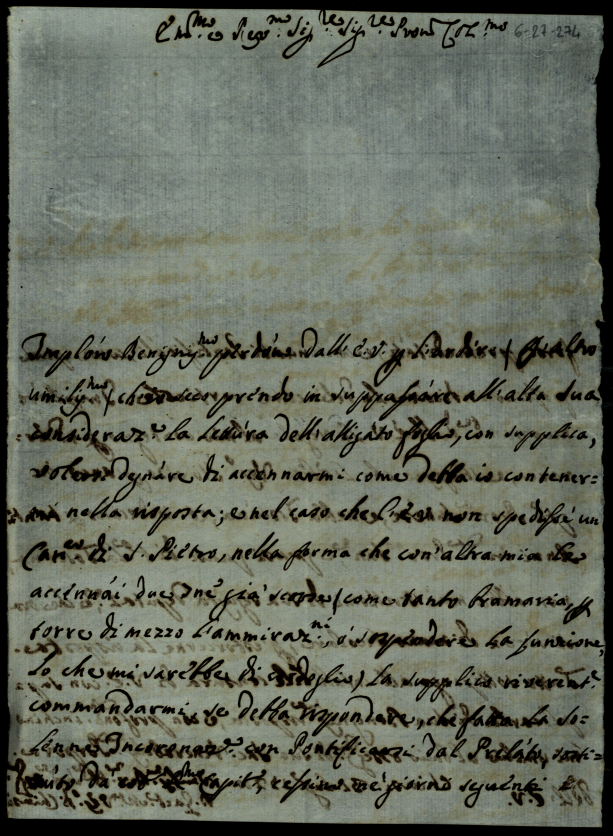 Em.mo e Rev.mo Sig.re Sig.re Pron Col.mo 6-27-274
Imploro Benigniss.mo perdono dall'E.V. p l'ardire (peraltro
umiliss.mo) che prendo in all'alta sua
consideraz.e la lettura dell'alligato foglio, con supplica,
voler degnare di accennarmi come debba io contener=
mi nella risposta; e nel caso che l'E.V. non spedisse un
Can.co di S. Pietro, nella forma che con altra mia Le
accennai due già scorse (come tanto bramaria, p
torre di mezzo l'ammiraz.ni, ò la funzione,
Lo che mi sarebbe di cordoglio) la supplico riverent.e
commandarmi se debba rispondere, che fatta la So=
lenne Incoronaz.e con Pontificarsi dal Prelato,
da Capit.o, ne' giorni seguenti e